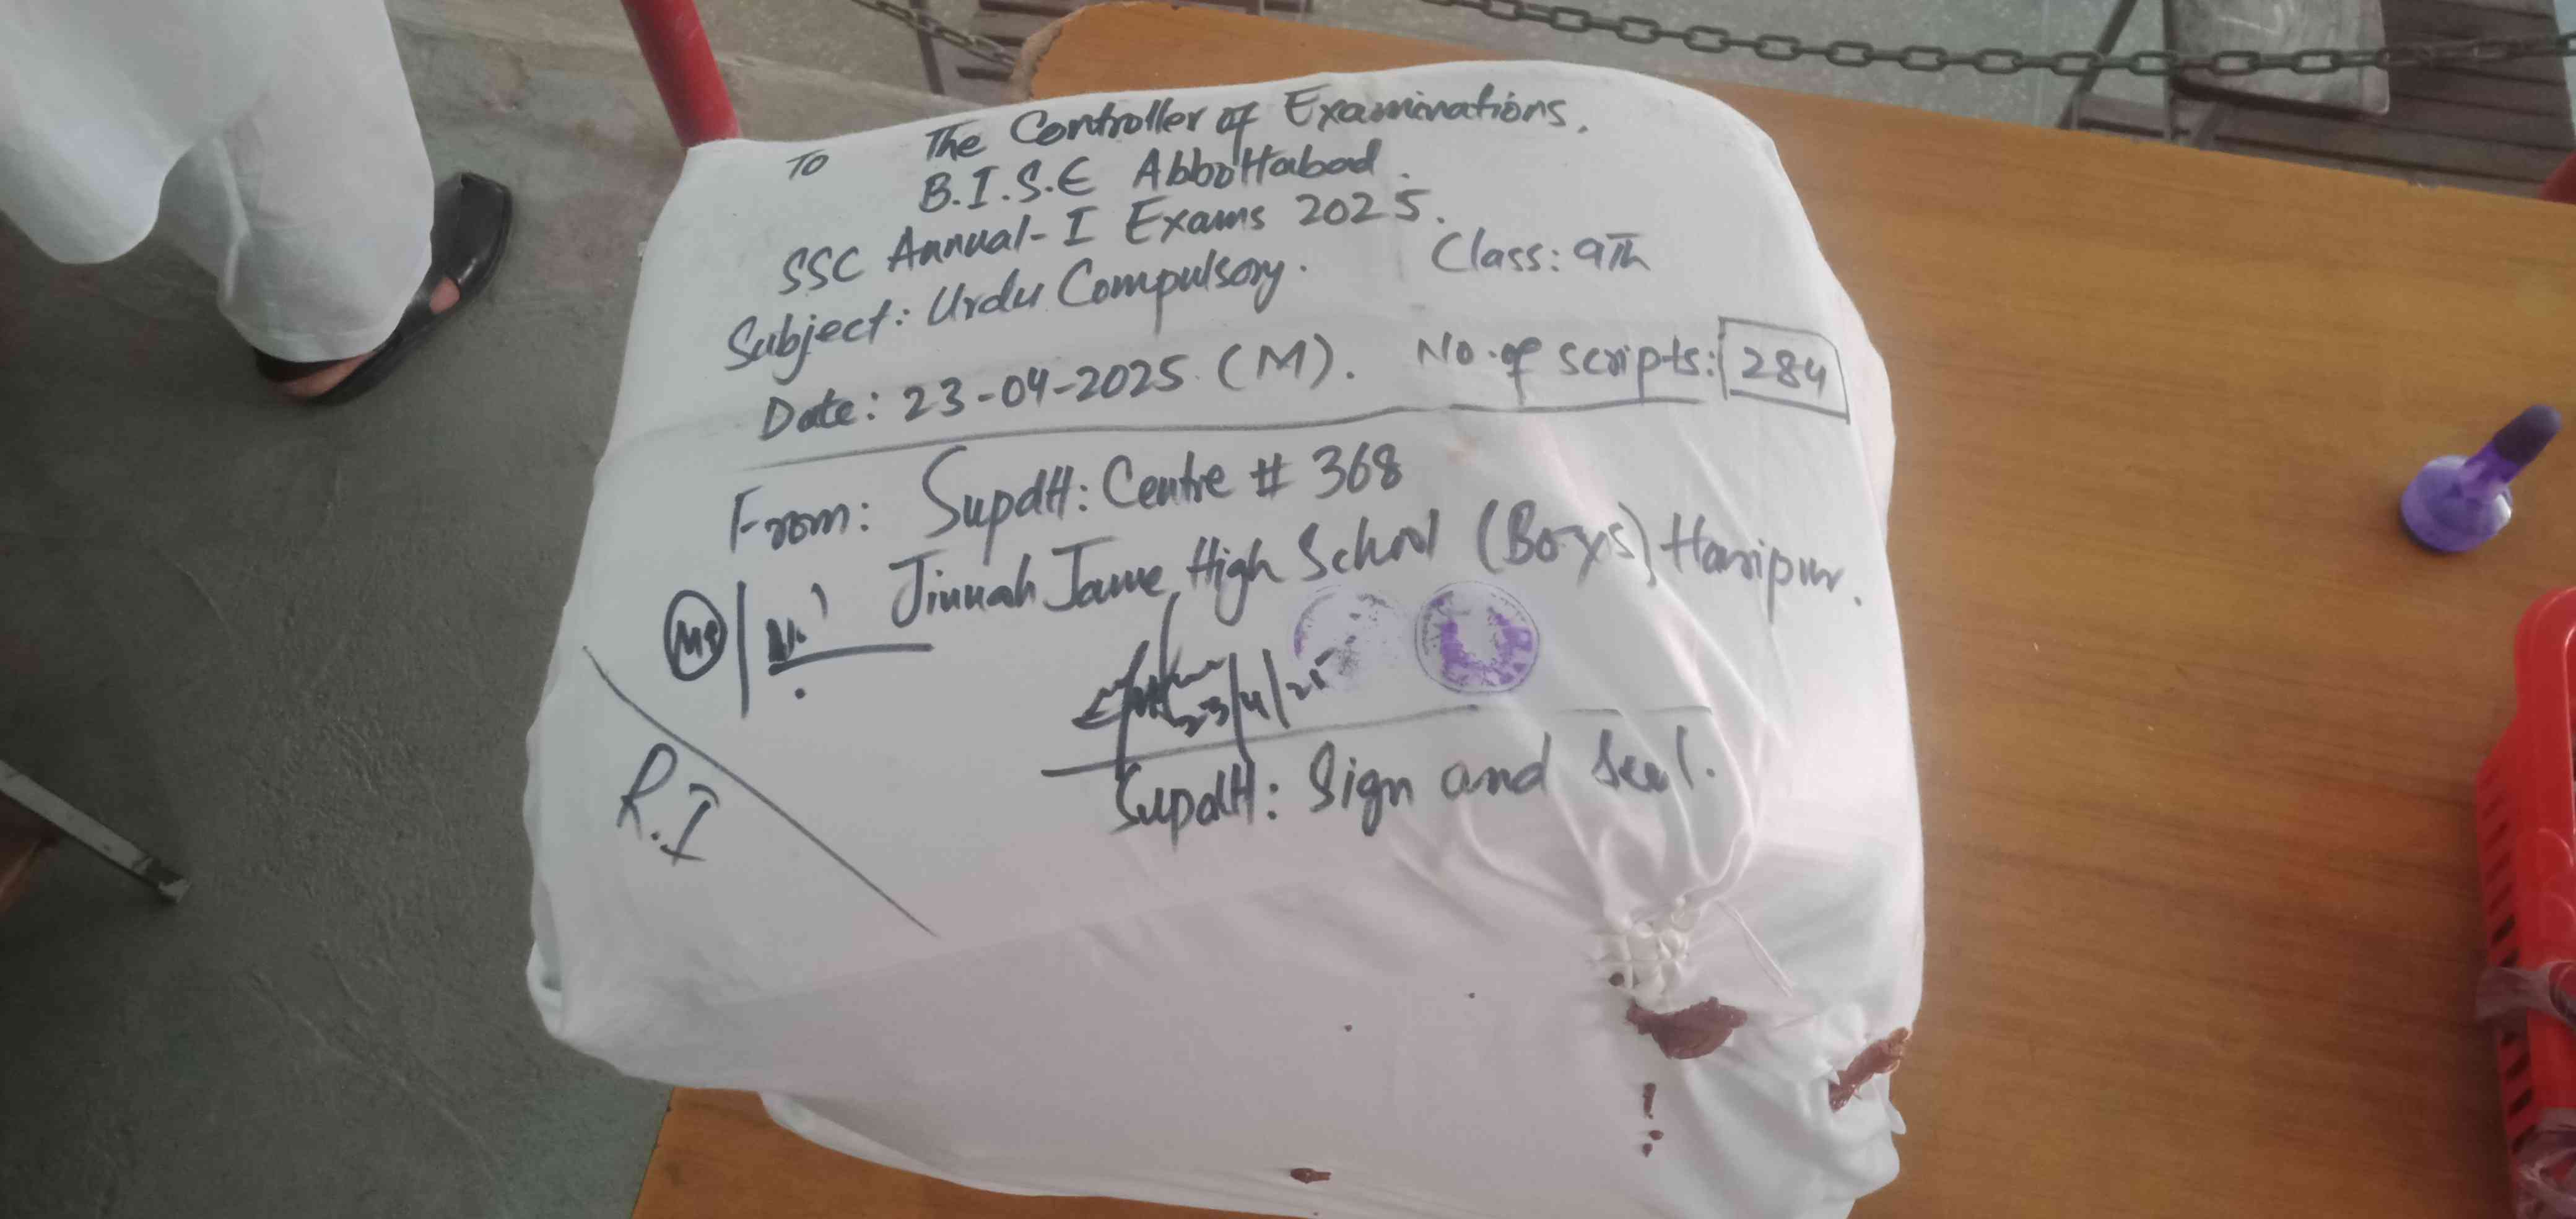 To The Controller of Examinations,
B.I.S.E Abbottabad.
SSC Annual-I Exams 2025.
Subject: Urdu Compulsory. Class: 9th
Date: 23-04-2025 (M). No. of scripts: 284
From: Supdtt: Centre # 368
Jinnah Jame High School (Boys) Haripur.
23/4/25
Supdtt: Sign and Seal.
R.I